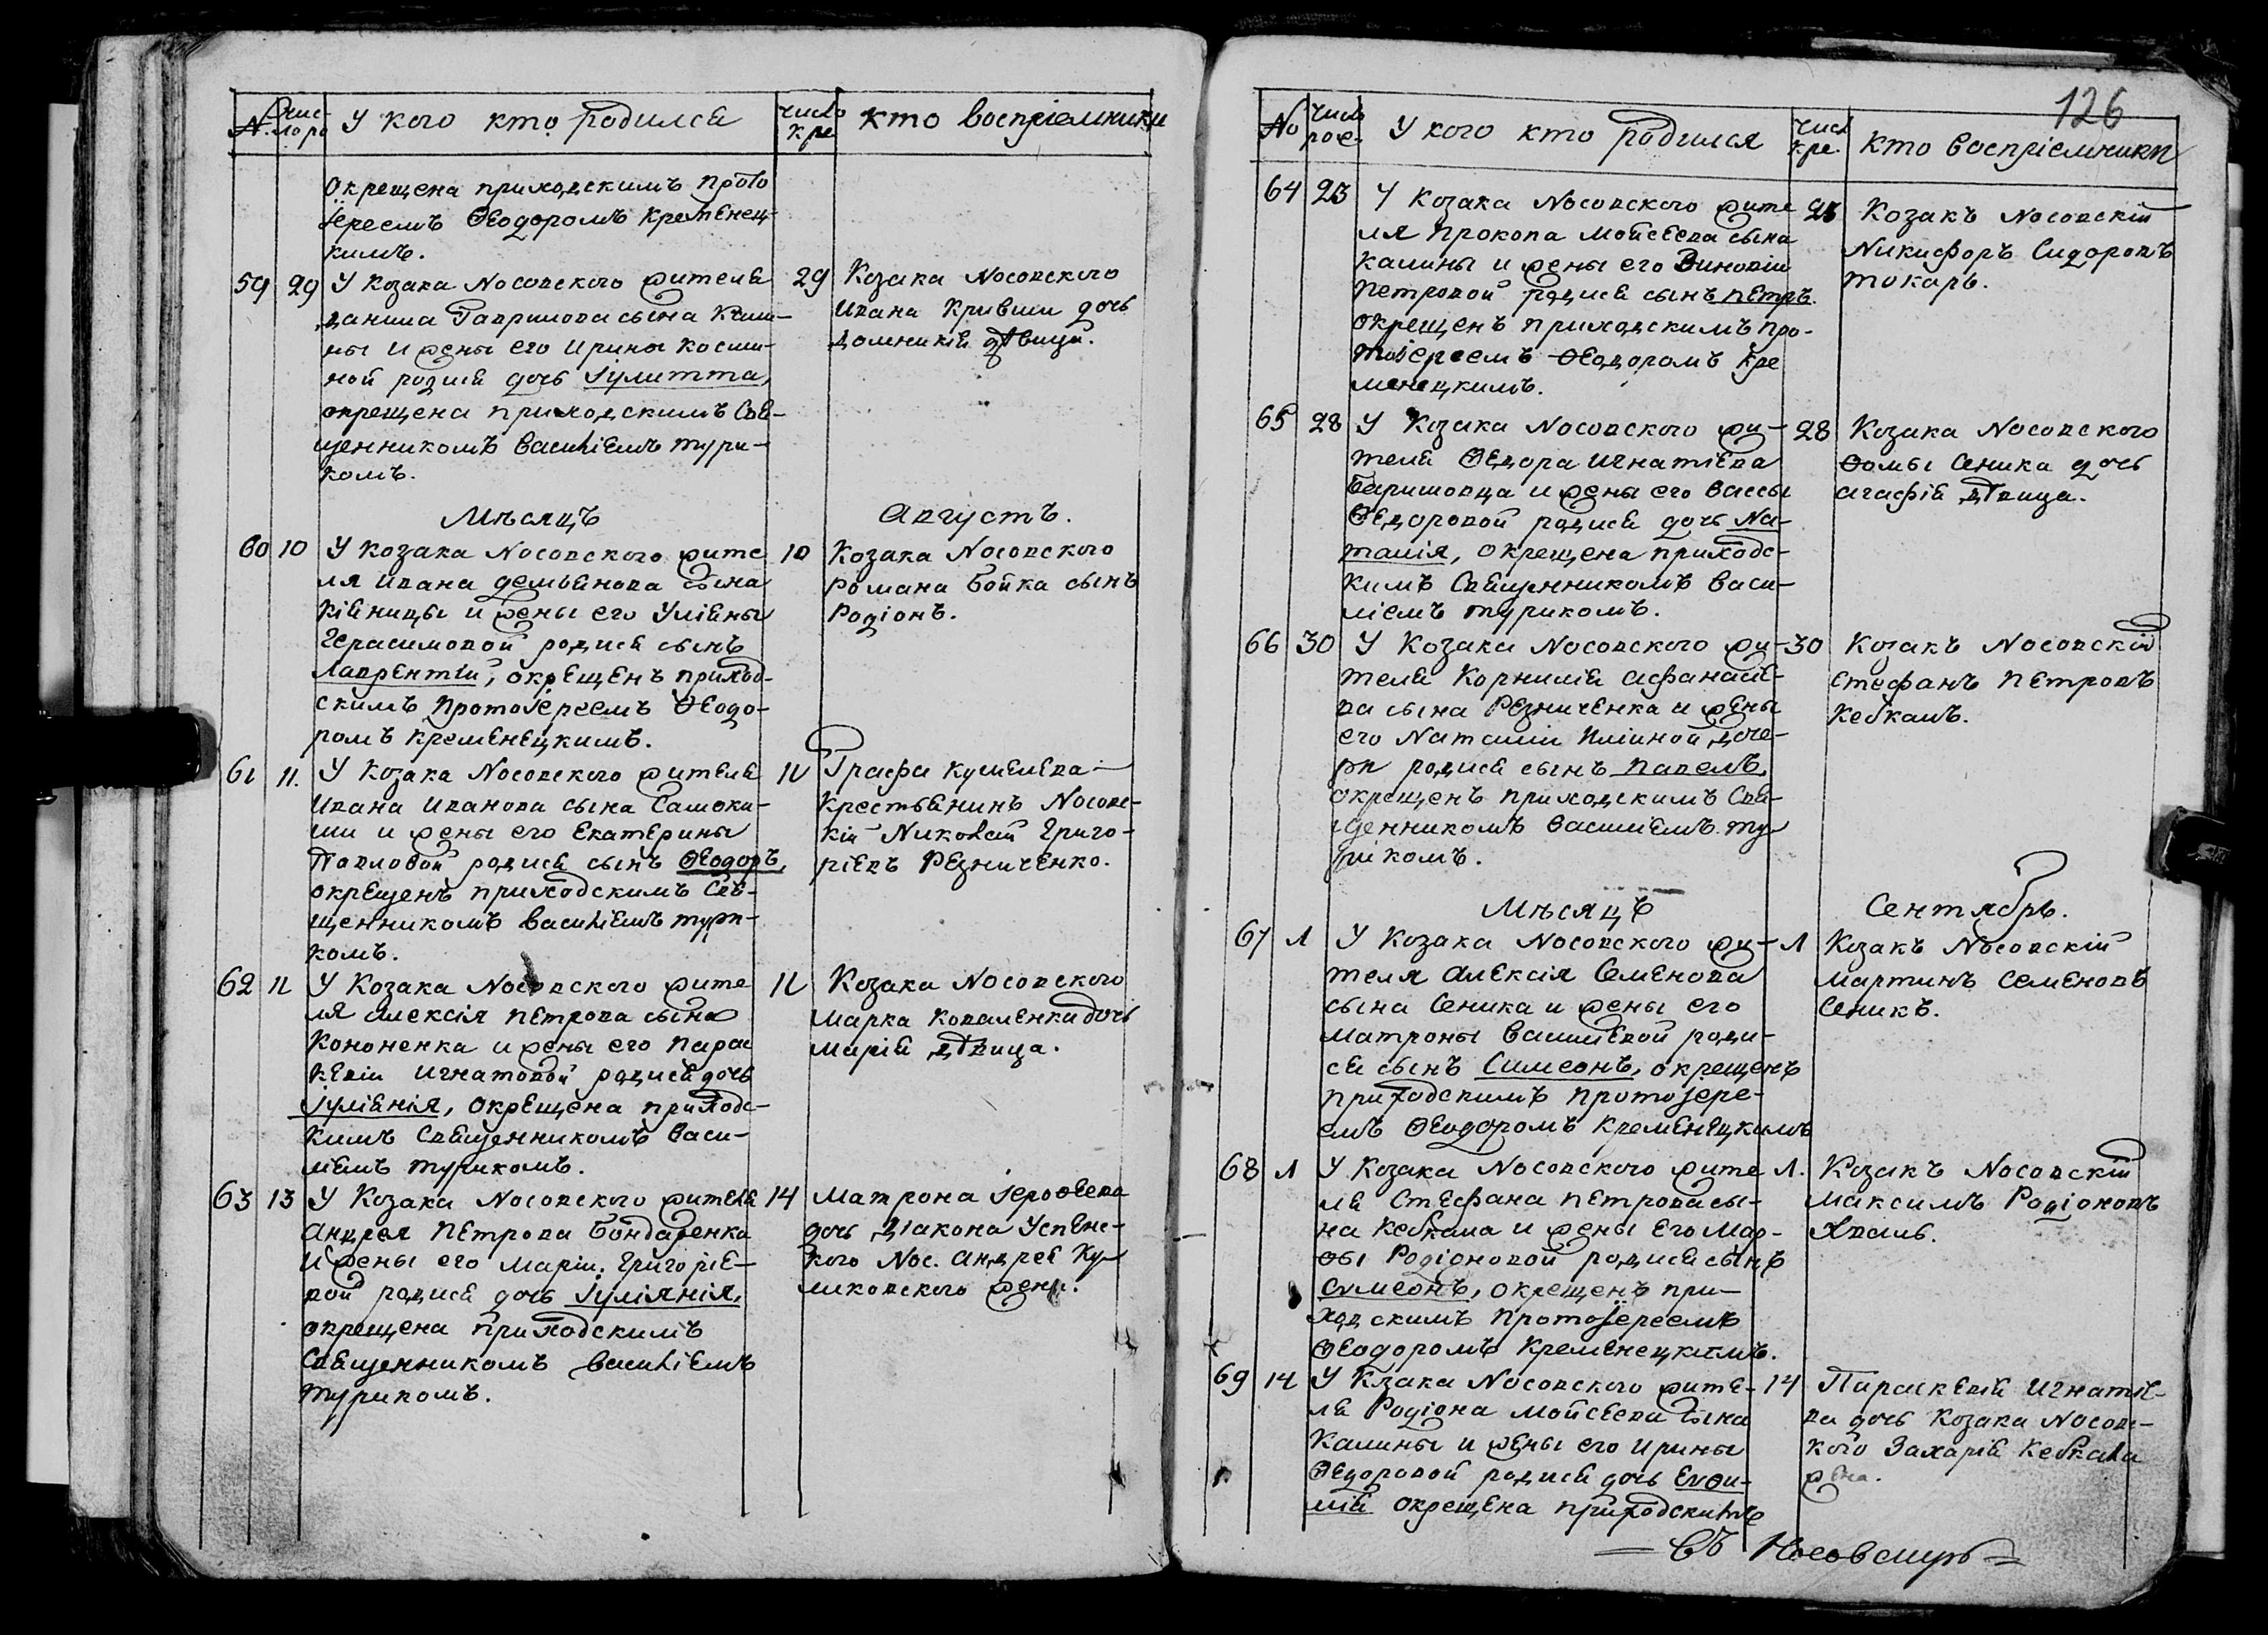 №. Чис- ло ро У кого кто родился число кре кто воспріемники
окрещена приходскимъ прото
іереемъ Ѳеодоромъ Кременец-
кимъ.
59 29 У Козака Носовского жителя
Данила Гаврилова сына Кали-
ны и жены его Ирины Косми-
ной родися дочь Іулитта,
окрещена приходскимъ Свя-
щенникомъ Василіемъ Тури-
комъ.
29 Козака Носовского
Ивана Кривши дочь
Домникія дѣвица.
Мѣсяцъ Августъ.
60 10 У Козака Носовского жите
ля Ивана Демьянова сына
Кіяницы и жены его Уліяны
Герасимовой родися сынъ
Лаврентій, окрещенъ приход-
скимъ протоіереемъ Ѳеодо-
ромъ Кременецкимъ.
10 Козака Носовского
Романа Бойка сынъ
Родіонъ.
61 11. У Козака Носовского жителя
Ивана Иванова сына Самока-
ши и жены его Екатерины
Павловой родися сынъ Ѳеодоръ,
окрещенъ приходскимъ Свя-
щенникомъ Василіемъ Тури-
комъ.
11 Графа Кушелева
Крестьянинъ Носовс-
кій Николай Григо-
ріевъ Резниченко.
62 11 У Козака Носовского жите
ля Алексія Петрова сына
Кононенка и жены его Парас
кевіи Игнатовой родися дочь
Іуліянія, окрещена приходс-
кимъ Священникомъ Васи-
ліемъ Турикомъ.
11 Козака Носовского
Марка Коваленка дочь
Марія дѣвица.
63 13 У Козака Носовского жителя
Андрея Петрова Бондаренка
и жены его Маріи Григоріе-
вой родися дочь Іуліянія,
окрещена приходскимъ
Священникомъ Василіемъ
Турикомъ.
14 Матрона Іероѳеева
дочь Діакона Успенс-
кого Нос. Андрея Ку
ликовского жена.
126
№ Число рое. У кого кто родился Числ кре. кто воспріемники
64 23 У Козака Носовского жите
ля Прокопа Мойсеева сына
Калины и жены его Зиновіи
Петровой родися сынъ Петръ.
окрещенъ приходскимъ про-
тоіереемъ Ѳеодоромъ Кре
менецкимъ.
23 Козакъ Носовскій
Никифоръ Сидоровъ
Токарь.
65 28 У Козака Носовского жи-
теля Ѳедора Игнатіева
Баришовца и жены его Вассы
Ѳедоровой родися дочь На-
талія, окрещена приходс-
кимъ Священникомъ Васи-
ліемъ Турикомъ.
28 Козака Носовского
Ѳомы Сеника дочь
Агафія дѣвица.
66 30 У Козака Носовского жи-
теля Корнилія Афанасіе-
ва сына Резниченка и жены
его Наталіи Иліиной доче-
ри родися сынъ Павелъ,
окрещенъ приходскимъ Свя-
щенникомъ Василіемъ Ту
рикомъ.
30 Козакъ Носовскій
Стефанъ Петровъ
Кебкалъ.
Мѣсяцъ Сентябрь.
67 1 У Козака Носовского жи-
теля Алексія Семенова
сына Сеника и жены его
Матроны Василіевой роди-
ся сынъ Симеонъ, окрещенъ
приходскимъ Протоіере-
емъ Ѳеодоромъ Кременецкимъ
1 Козакъ Носовскій
Мартинъ Семеновъ
Сеникъ.
68 1 У Козака Носовского жите
ля Стефана Петрова сы-
на Кебкала и жены его Мар-
ѳы Родіоновой родися сынъ
Симеонъ, окрещенъ при-
ходскимъ Протоіереемъ
Ѳеодоромъ Кременецкимъ.
1. Козакъ Носовскій
Максимъ Родіоновъ
Хваль.
69 14 У Кзака Носовского жите-
ля Родіона Мойсеева сына
Калины и жены его Ирины
Ѳедоровой родися дочь Евѳи-
мія окрещена приходскимъ
14 Параскевія Игнатіе-
ва дочь Козака Носовс-
кого Захарія Кебкала
жена.